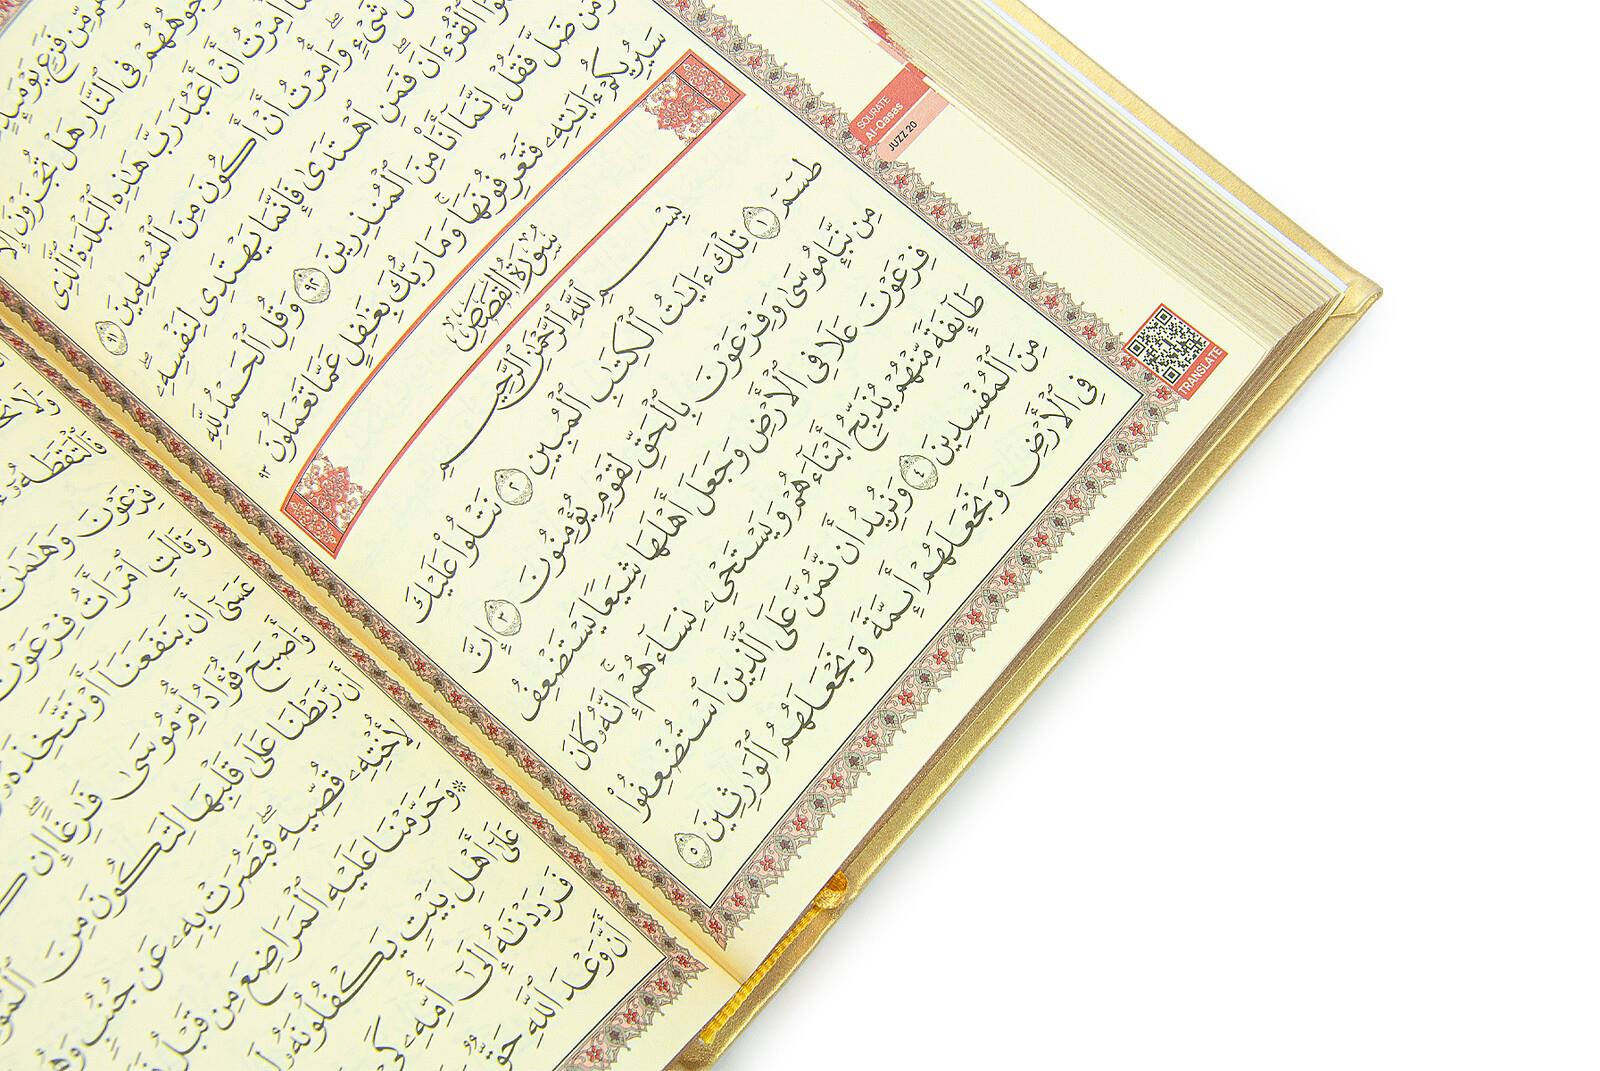 مِّن فَزَعٍ يَوْمَئِذٍ
وُجُوهُهُمْ فِى ٱلنَّارِ هَلْ تُجْزَوْنَ إِلَّا
أُمِرْتُ أَنْ أَعْبُدَ رَبَّ هَٰذِهِ ٱلْبَلْدَةِ ٱلَّذِى
شَىْءٍ ۖ وَأُمِرْتُ أَنْ أَكُونَ مِنَ ٱلْمُسْلِمِينَ ٩١
ٱلْقُرْءَانَ ۖ فَمَنِ ٱهْتَدَىٰ فَإِنَّمَا يَهْتَدِى لِنَفْسِهِۦ ۖ
وَمَن ضَلَّ فَقُلْ إِنَّمَآ أَنَا۠ مِنَ ٱلْمُنذِرِينَ ٩٢ وَقُلِ ٱلْحَمْدُ لِلَّهِ
سَيُرِيكُمْ ءَايَٰتِهِۦ فَتَعْرِفُونَهَا ۚ وَمَا رَبُّكَ بِغَٰفِلٍ عَمَّا تَعْمَلُونَ ٩٣
سُورَةُ القَصَصِ
بِسْمِ ٱللَّهِ ٱلرَّحْمَٰنِ ٱلرَّحِيمِ
طسٓمٓ ١ تِلْكَ ءَايَٰتُ ٱلْكِتَٰبِ ٱلْمُبِينِ ٢ نَتْلُوا۟ عَلَيْكَ
مِن نَّبَإِ مُوسَىٰ وَفِرْعَوْنَ بِٱلْحَقِّ لِقَوْمٍ يُؤْمِنُونَ ٣ إِنَّ
فِرْعَوْنَ عَلَا فِى ٱلْأَرْضِ وَجَعَلَ أَهْلَهَا شِيَعًا يَسْتَضْعِفُ
طَآئِفَةً مِّنْهُمْ يُذَبِّحُ أَبْنَآءَهُمْ وَيَسْتَحْىِۦ نِسَآءَهُمْ ۚ إِنَّهُۥ كَانَ
مِنَ ٱلْمُفْسِدِينَ ٤ وَنُرِيدُ أَن نَّمُنَّ عَلَى ٱلَّذِينَ ٱسْتُضْعِفُوا۟
فِى ٱلْأَرْضِ وَنَجْعَلَهُمْ أَئِمَّةً وَنَجْعَلَهُمُ ٱلْوَٰرِثِينَ ٥
SOURATE
Al-Qasas
JUZZ 20
TRANSLATE
فَٱلْتَقَطَهُۥٓ
فِرْعَوْنَ وَهَٰمَٰنَ
وَقَالَتِ ٱمْرَأَتُ فِرْعَوْنَ
عَسَىٰٓ أَن يَنفَعَنَآ أَوْ نَتَّخِذَهُۥ
وَأَصْبَحَ فُؤَادُ أُمِّ مُوسَىٰ فَٰرِغًا ۖ إِن
أَن رَّبَطْنَا عَلَىٰ قَلْبِهَا لِتَكُونَ مِنَ
لِأُخْتِهِۦ قُصِّيهِ ۖ فَبَصُرَتْ بِهِۦ عَن جُنُبٍ وَهُمْ
۞ وَحَرَّمْنَا عَلَيْهِ ٱلْمَرَاضِعَ مِن قَبْلُ
عَلَىٰٓ أَهْلِ بَيْتٍ يَكْفُلُونَهُۥ
فَرَدَدْنَٰهُ إِلَىٰٓ أُمِّهِۦ كَىْ
أَنَّ وَعْدَ ٱللَّهِ حَقٌّ